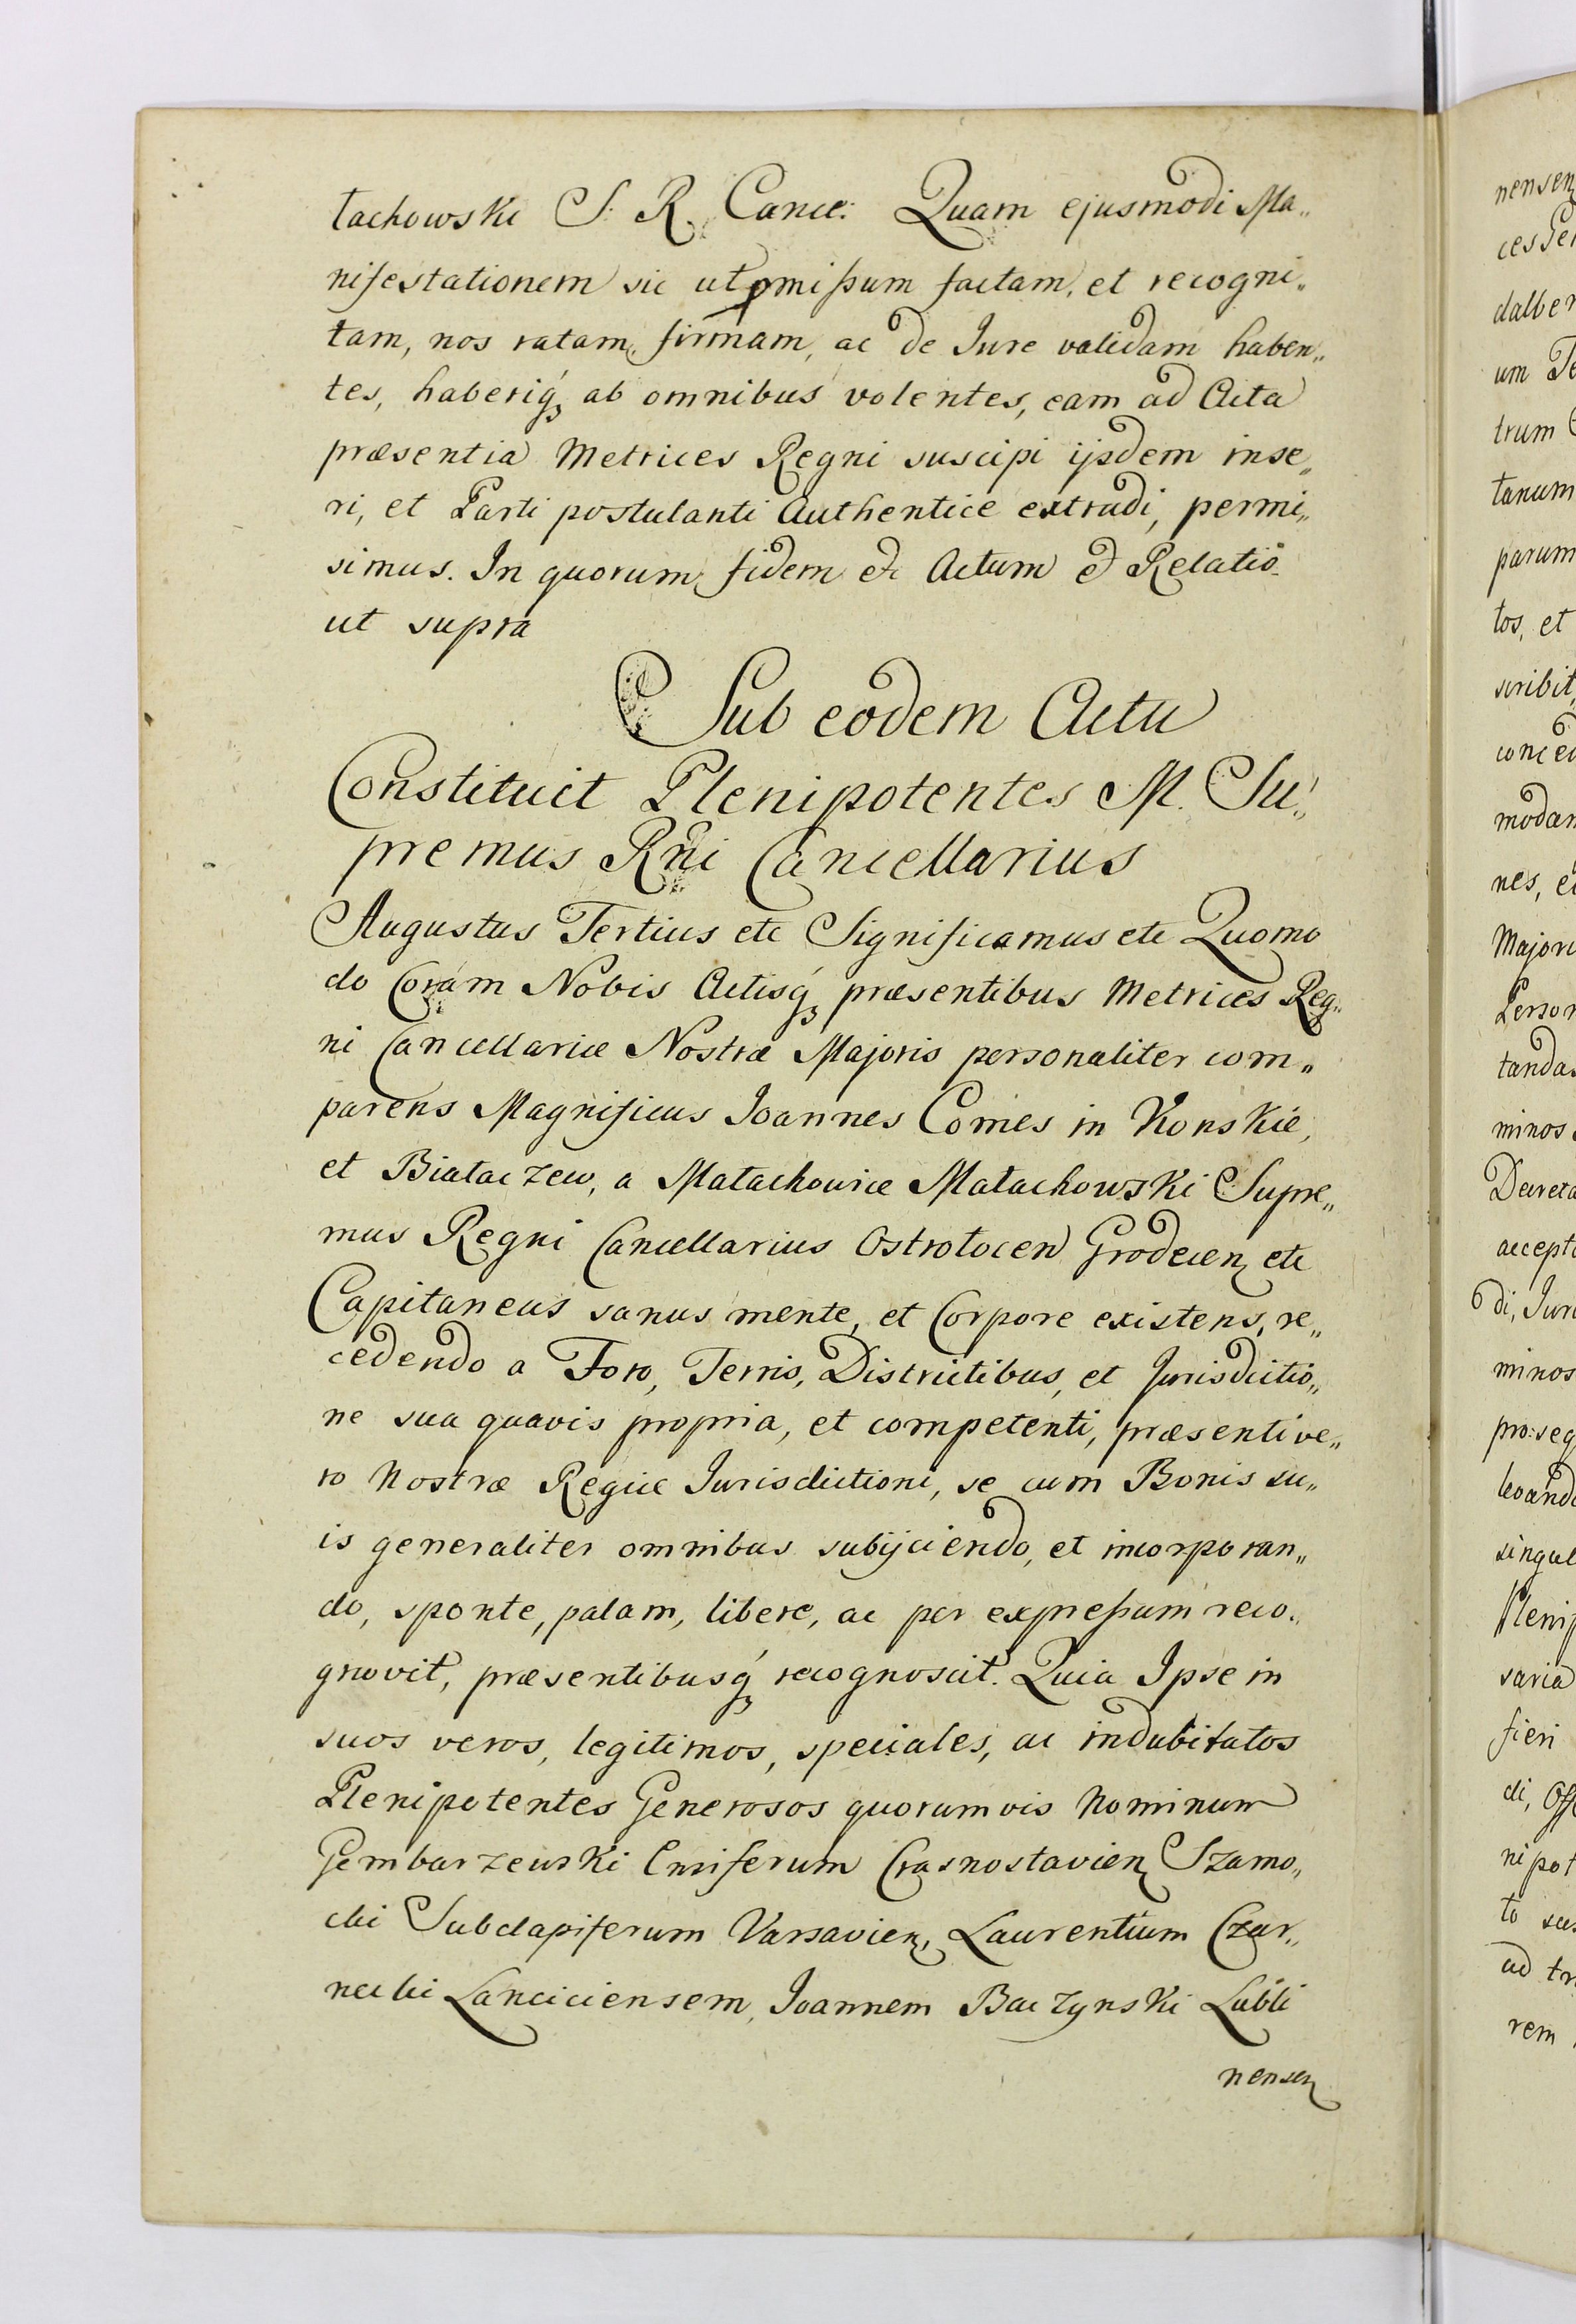 łachowski S. R. Cance: Quam ejusmodi Ma„
nifestationem sic ut pmissum factam, et recogni„
tam, nos ratam, firmam, ac de Jure validam haben„
tes, haberiq́ꝫ ab omnibus volentes, eam ad Acta
præsentia Metrices Regni suscipi ijsdem inse„
ri, et Parti postulanti Authentice extradi, permi„
simus. In quorum fidem etc Actum et Relatio
ut supra
Sub eodem Actu
Constituit Plenipotentes M. Su„
premus Rni Cancellarius
Augustus Tertius etc Significamus etc Quomo
do Coram Nobis Actisq́ꝫ præsentibus Metrices Reg„
ni Cancellariæ Nostræ Majoris personaliter com„
parens Magnificus Joannes Comes in Konskie,
et Białaczew, a Małachowice Małachowski Supre„
mus Regni Cancellarius Ostrołocen Grodecenꝫ etc
Capitaneus sanus mente, et Corpore existens, re„
cedendo a Foro, Terris, Districtibus, et Jurisdictio„
ne sua quavis propria, et competenti, præsenti ve„
ro Nostræ Regiæ Jurisdictioni, se cum Bonis su„
is generaliter omnibus subijciendo, et incorporan„
do, sponte, palam, libere, ac per expressum reco„
gnovit, præsentibusq́ꝫ recognoscit. Quia Ipse in
suos veros, legitimos, speciales, ac indubitatos
Plenipotentes Generosos quorumvis Nominum
Gembarzewski Ensiferum Crasnostavienꝫ Szamo„
cki Subdapiferum Varsavienꝫ, Laurentium Czar„
necki Lanciciensem, Joannem Baczynski Lubli
nensenꝫ
nensenꝫ
dalber
um
trum
tanum
parum
tos, et
scribit,
conced
modan
nes,
Majori
Person
tanda
minos
Decreta
accepta
di, Juri
minos
pro:seq
levand
singul
Plenip
saria
fieri
di, Off
nipot
to
ad tr
rem